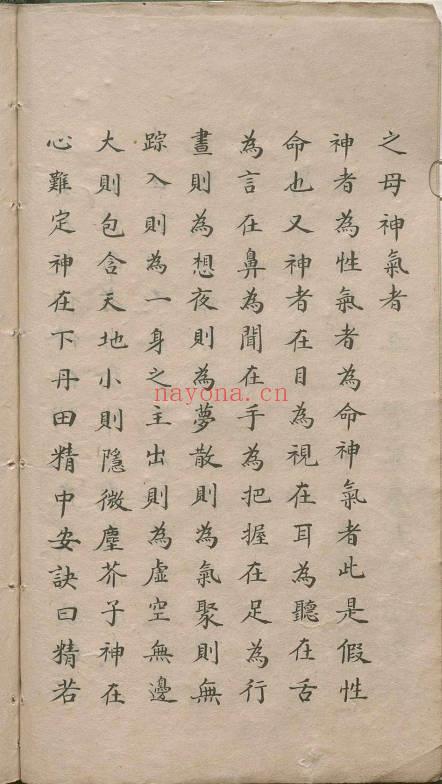 之母神氣者
神者為性氣者為命神氣者此是假性
命也又神者在目為視在耳為聽在舌
為言在鼻為聞在手為把握在足為行
晝則為想夜則為夢散則為氣聚則無
踪入則為一身之主出則為虛空無邊
大則包含天地小則隱微塵芥子神在
心難定神在下丹田精中安訣曰精若
nayona.cn